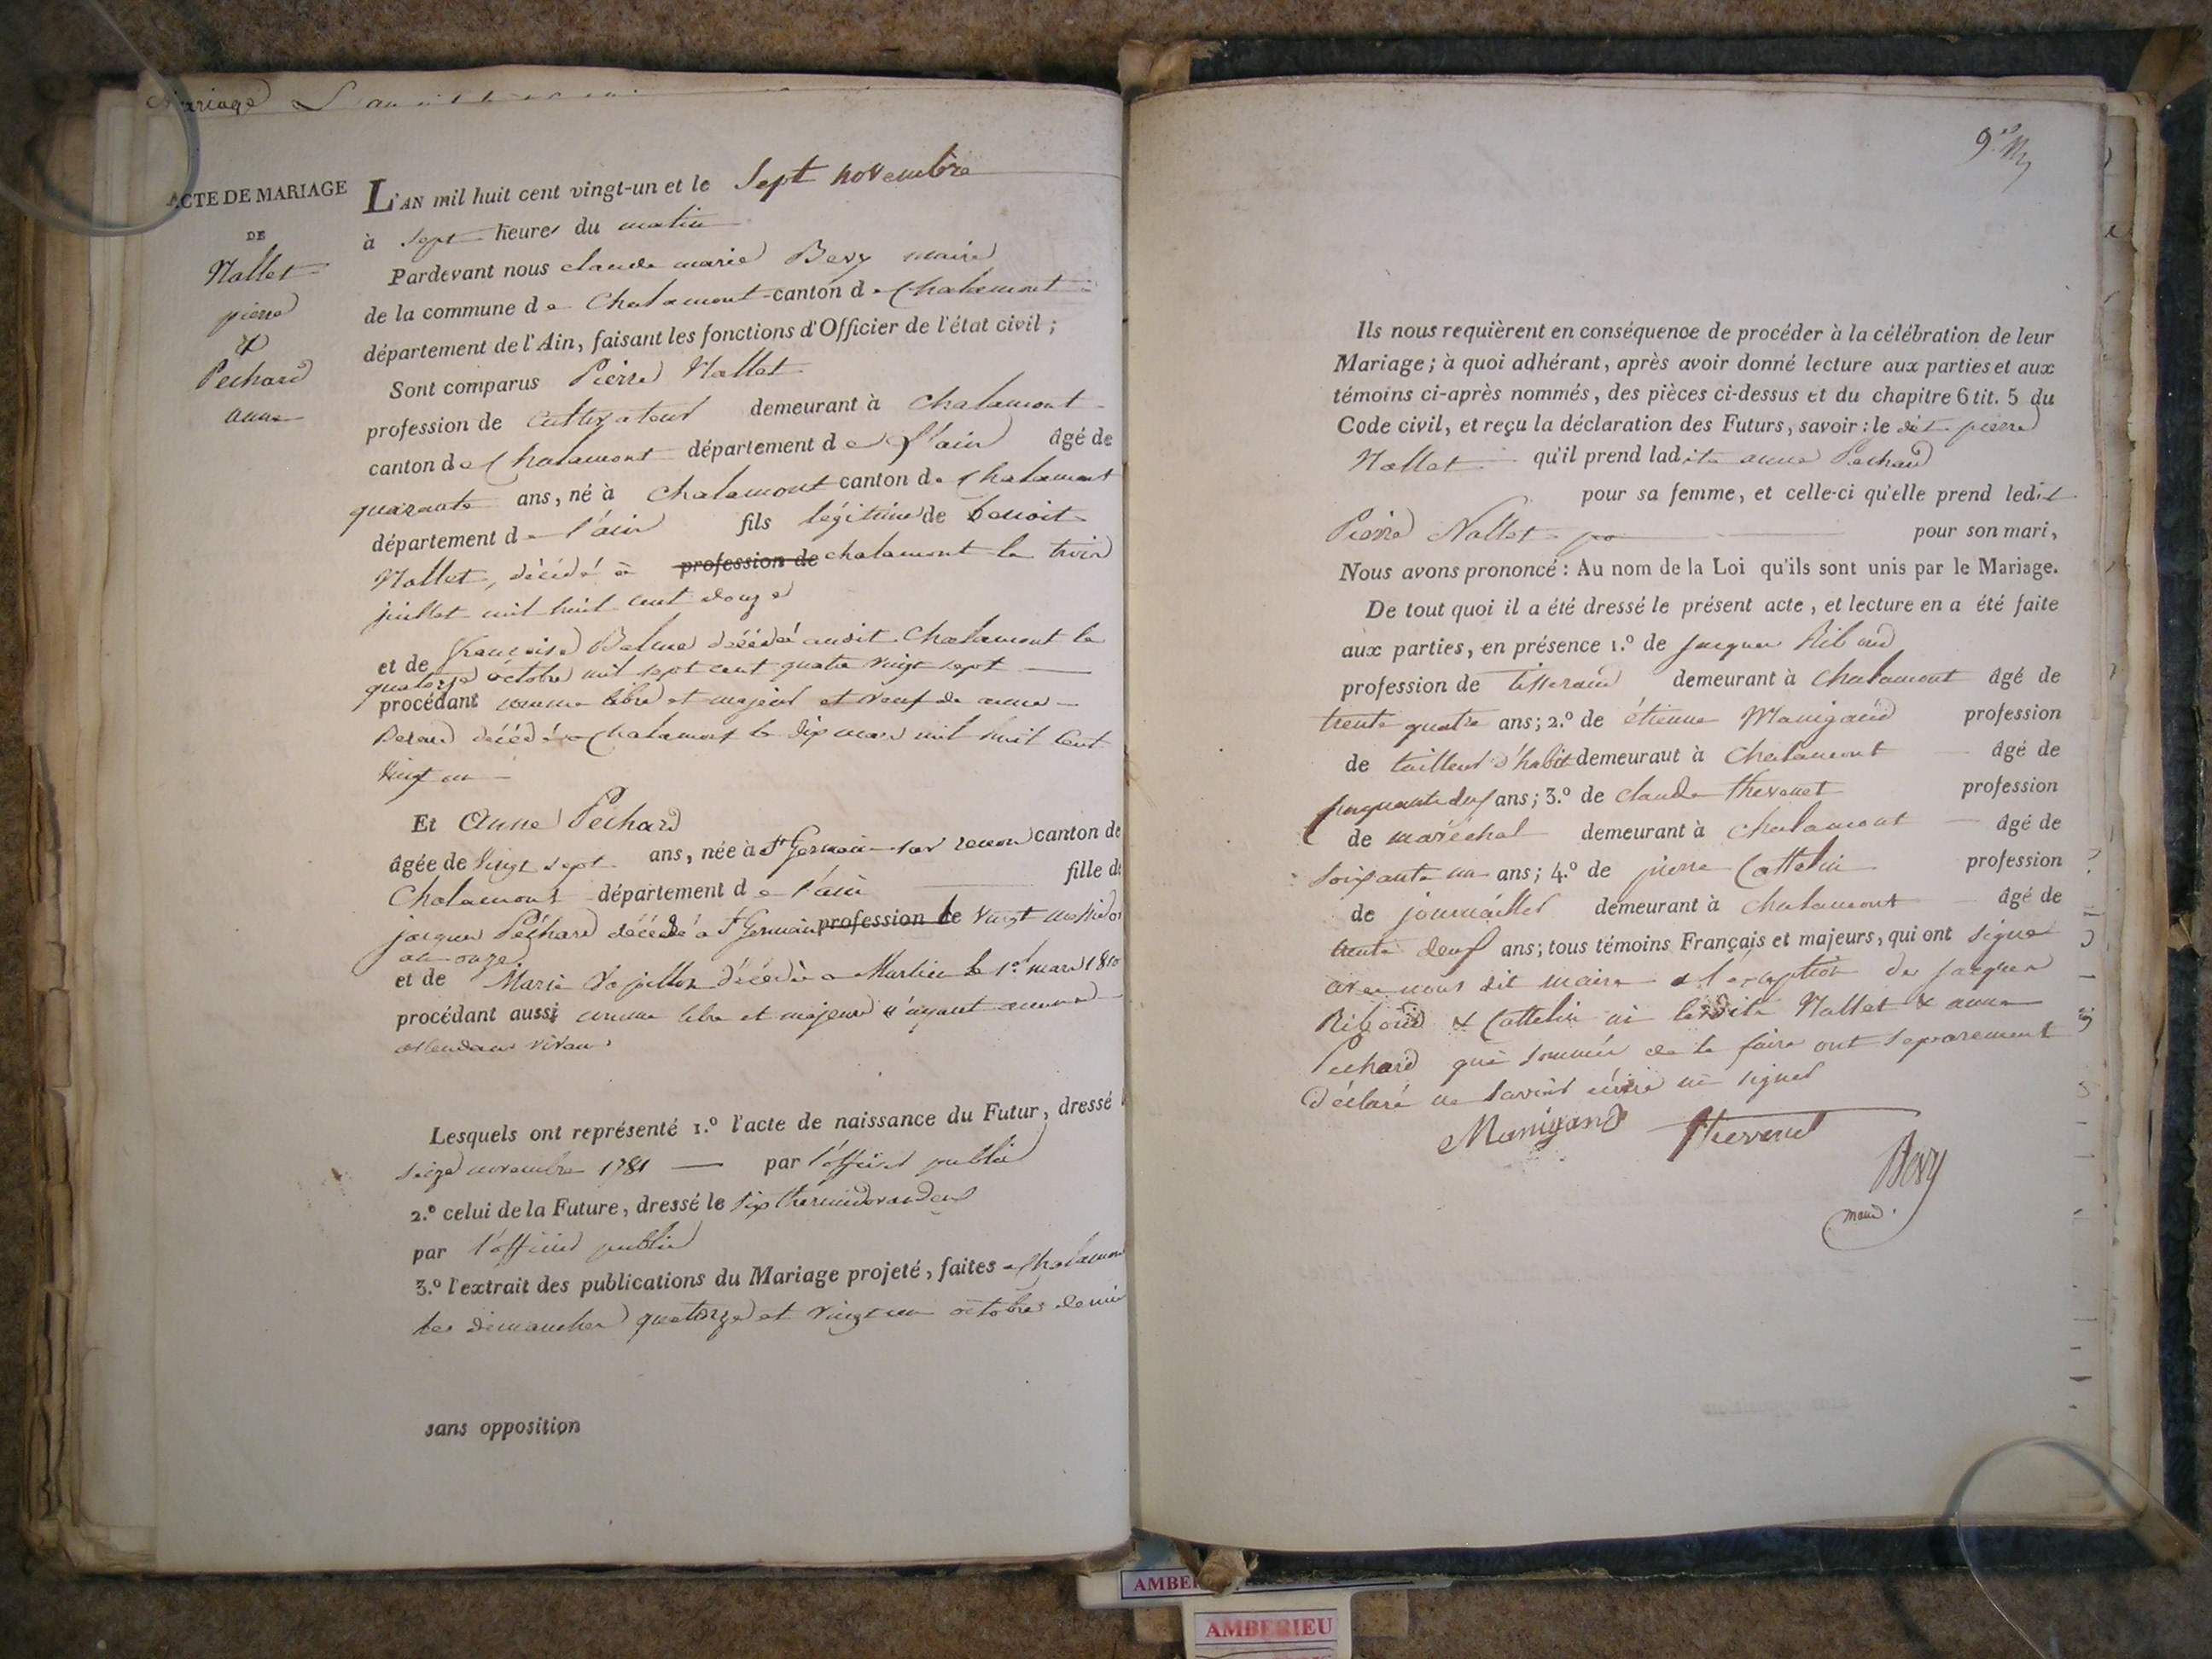 Mariage L'an
ACTE DE MARIAGE
DE
Nallet
pierre
&
Pechard
anne
L'AN mil huit cent vingt-un et le Sept novembre
à sept heures du matin
Pardevant nous claude marie Bevy maire
de la commune de Chalamont canton de Chalamont
département de l'Ain, faisant les fonctions d'Officier de l'état civil ;
Sont comparus Pierre Nallet
profession de cultivateur demeurant à chalamont
canton de Chalamont département de l'ain âgé de
quarante ans, né à chalamont canton de Chalamont
département de l'ain fils légitime de benoit
Nallet, décédé à profession de chalamont le trois
juillet mil huit cent douze
et de françoise Balme décédé audit Chalamont le
quatorze octobre mil sept cent quatre vingt sept
procédant comme libre et majeur et veuf de anne
décédé a Chalamont le dix mars mil huit cent
vingt un
Et Anne Pechard
âgée de vingt sept ans, née à St Germain sur renon canton de
Chalamont département de l'ain fille de
jacques Péchard décédé à St Germain profession de vingt messidor
an onze
et de Marie décédé a Marlieu le 1er mars 1810
procédant aussi comme libre et majeure n'ayant aucuns
vivans
Lesquels ont représenté 1.º l'acte de naissance du Futur, dressé l
seize novembre 1781 par l'officier public
2.º celui de la Future, dressé le six thermidor an deux
par l'officier public
3.º l'extrait des publications du Mariage projeté, faites a Chalamon
les dimanches quatorze et vingt un octobre dernier
sans opposition
Ils nous requièrent en conséquence de procéder à la célébration de leur
Mariage ; à quoi adhérant, après avoir donné lecture aux parties et aux
témoins ci-après nommés, des pièces ci-dessus et du chapitre 6 tit. 5 du
Code civil, et reçu la déclaration des Futurs, savoir : le dit pierre
Nallet qu'il prend ladite anne Pechard
pour sa femme, et celle-ci qu'elle prend ledit
Pierre Nallet pour son mari,
Nous avons prononcé : Au nom de la Loi qu'ils sont unis par le Mariage.
De tout quoi il a été dressé le présent acte, et lecture en a été faite
aux parties, en présence 1.º de jacques Riboud
profession de tisserand demeurant à Chalamont âgé de
trente quatre ans ; 2.º de étienne Manigand profession
de tailleur d'habit demeurant à Chalamont âgé de
cinquante deux ans ; 3.º de claude thevenet profession
de maréchal demeurant à Chalamont âgé de
soixante un ans ; 4.º de pierre Cattelin profession
de journallier demeurant à Chalamont âgé de
trente deux ans ; tous témoins Français et majeurs, qui ont signé
avec nous dit maire a l'exception de jacques
Riboud & Cattelin ni lesdits Nallet & anne
Pechard qui sommés de le faire ont separement
déclaré ne savoir écrire ni signer
Manigand Thevenet
Bevy
maire.
AMBERIEU